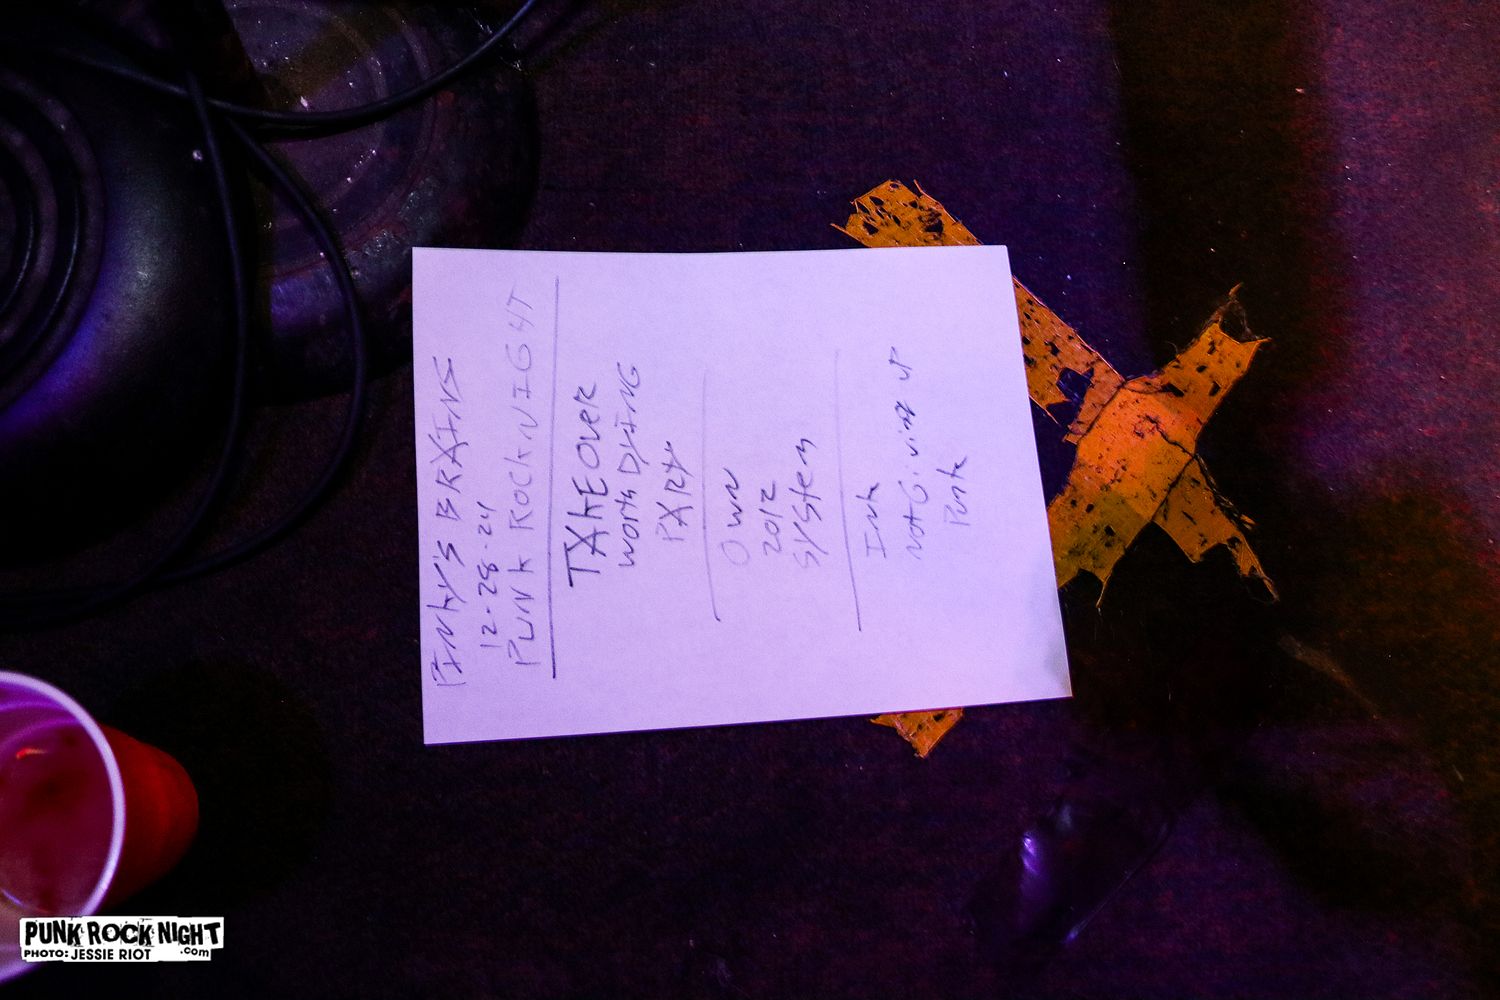 PINKY'S BRAINS
12-28-24
PUNK ROCK NIGHT
TAKEOVER
WORTH DYING
PARTY
OWN
2012
SYSTEM
Ink
Not Giving up
Punk
PUNK ROCK NIGHT
.com
PHOTO: JESSIE RIOT